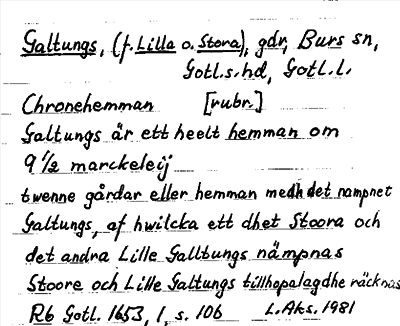 Galtungs, (f. Lilla o. Stora), gdr, Burs sn,
Gotl.s. hd, Gotl. l.
Chronehemman [rubr.]
Galtungs är ett heelt hemman om
9 1/2 marckeleij
twenne gårdar eller hemman medh det nampnet
Galtungs, af hwilcka ett dhet Stoora och
det andra Lille Galltungs nämpnas
Stoore och Lille Galtungs tillhopalagdhe räcknas
Rb Gotl. 1653, 1, s. 106 L. Aks. 1981